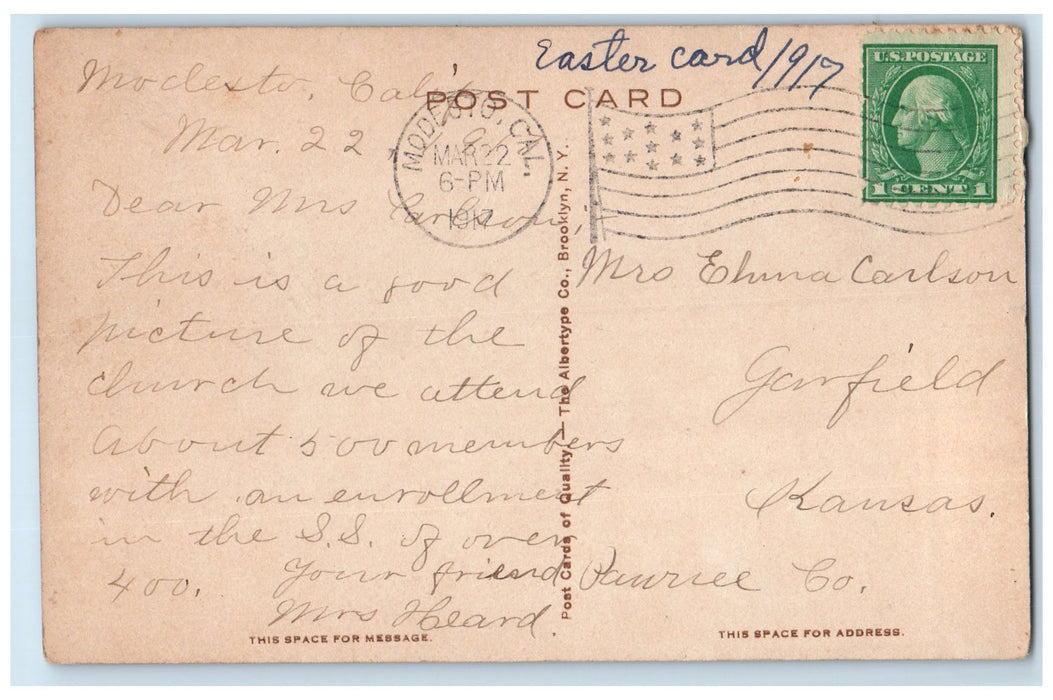 Easter card 1917
POST CARD
U.S. POSTAGE
1 CENT 1
MODESTO, CAL.
MAR 22
6-PM
1917
Modesto, Calif.
Mar. 22
Dear Mrs Carlson,
This is a good
picture of the
church we attend
About 500 members
with an enrollment
in the S.S. of over
400. Your friend
Mrs Heard.
THIS SPACE FOR MESSAGE.
Post Cards of Quality.—The Albertype Co., Brooklyn, N. Y.
Mrs Elmna Carlson
Garfield
Kansas.
Pawnee Co.
THIS SPACE FOR ADDRESS.